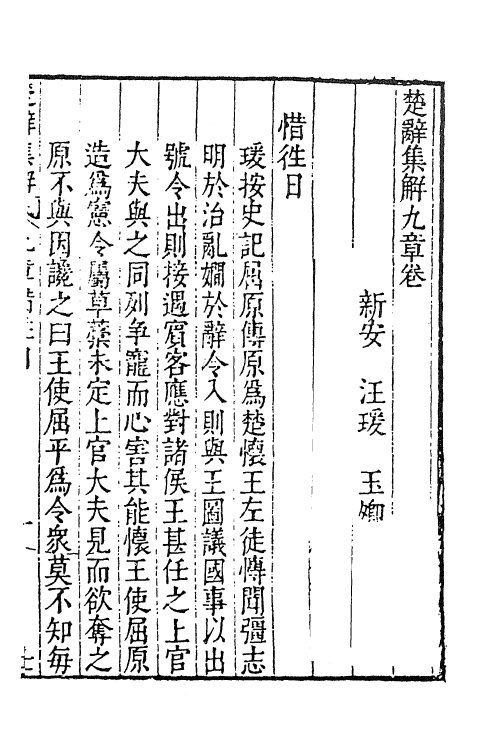 楚辭集解九章卷
新安　汪瑗　玉卿
惜徃日
瑗按史記屈原傳原爲楚懷王左徒博聞彊志
明於治亂嫺於辭令入則與王圖議國事以出
號令出則接遇賓客應對諸侯王甚任之上官
大夫與之同列争寵而心害其能懷王使屈原
造爲憲令屬草藁未定上官大夫見而欲奪之
原不與因讒之曰王使屈平爲令衆莫不知每